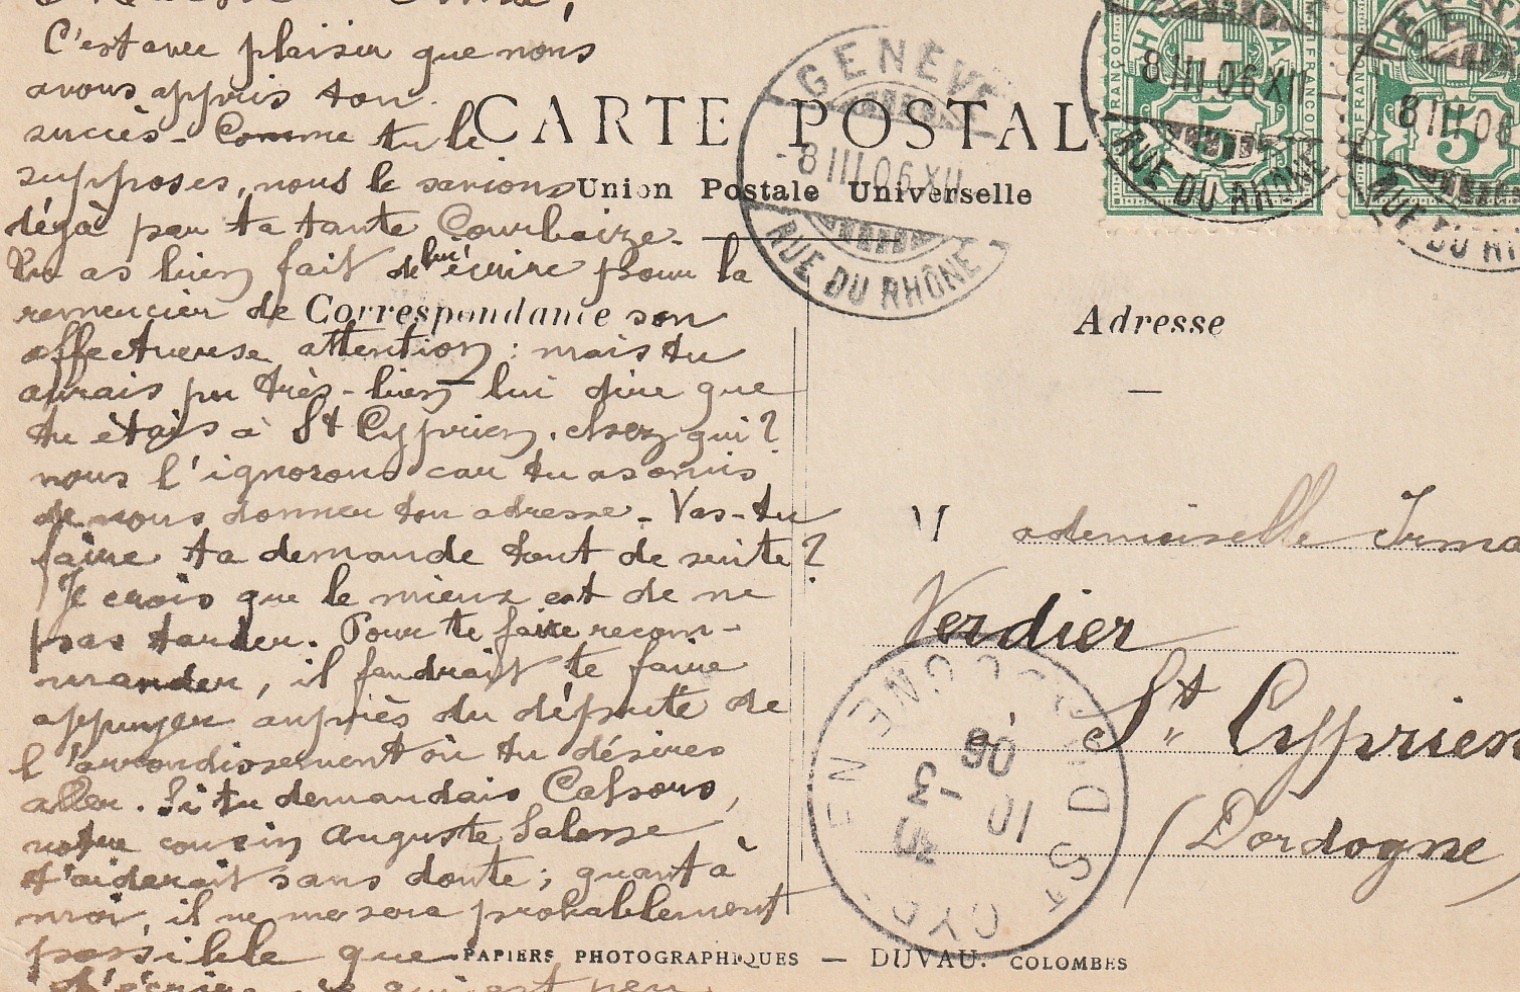 C'est avec plaisir que nous
avons appris ton
succès - Comme tu le
supposes, nous le savions
déjà par ta tante Courbaize.
Tu as bien fait de lui écrire pour la
remercier de son
affectueuse attention : mais tu
aurais pu très-bien lui dire que
tu étais à St Cyprien. chez qui ?
nous l'ignorons car tu as omis
de nous donner ton adresse - Vas-tu
faire ta demande tout de suite ?
Je crois que le mieux est de ne
pas tarder. Pour te faire recom-
mander, il faudrait te faire
appuyer auprès du député de
l'arrondissement où tu désires
aller. Si tu demandais
notre cousin Auguste
t'aiderait sans doute ; quant à
moi, il ne me sera probablement
possible que
d'écrire, ce qui est peu
CARTE POSTAL
Union Postale Universelle
Correspondance
Adresse
GENÈVE
-8 III 06 XII
RUE DU RHÔNE
HELVETIA
FRANCO
5
FRANCO
8 III 06 XII
RUE DU RHÔNE
FRANCO
5
8 III 06
RUE DU RH
Mademoiselle Irma
Verdier
St Cyprien
(Dordogne)
ST CYP
DORDOGNE
10 3 06
PAPIERS PHOTOGRAPHIQUES — DUVAU. COLOMBES